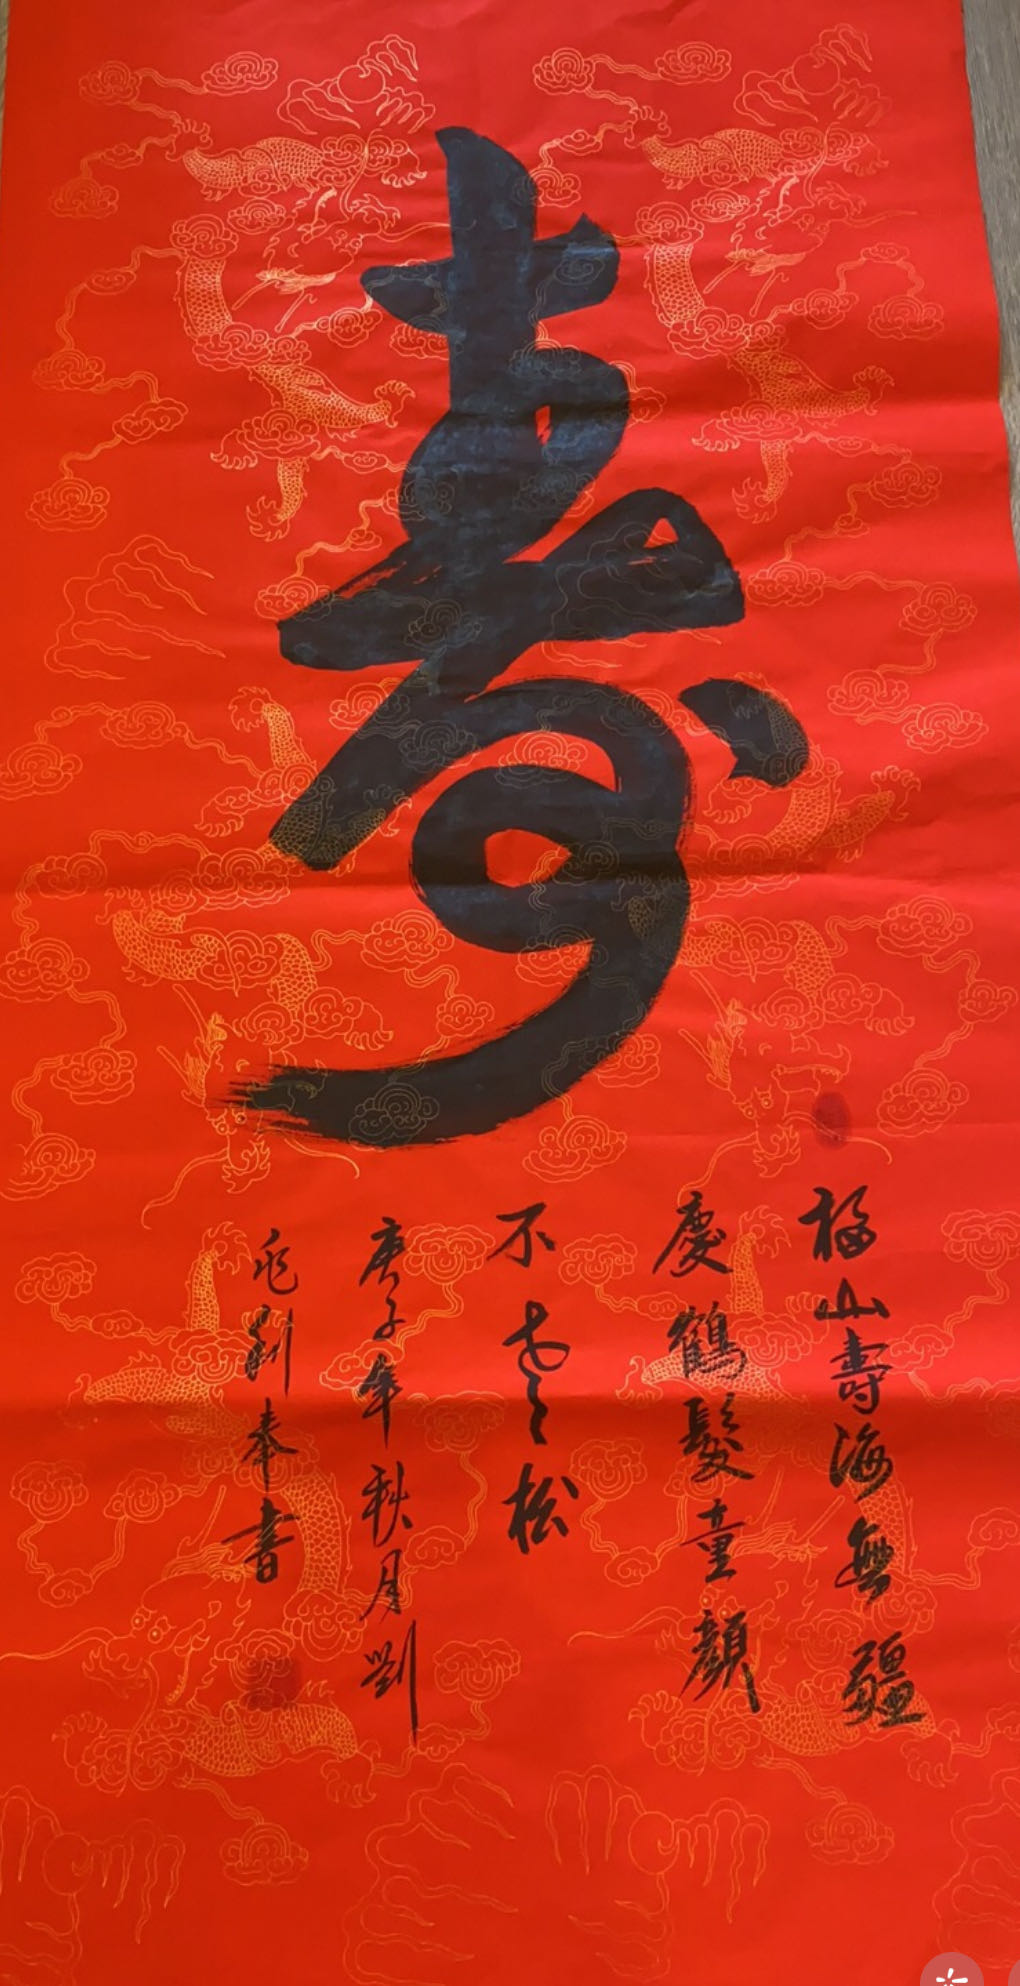 壽
福山壽海無疆
慶鶴髮童顏
不老松
庚子年秋月劉
奉書